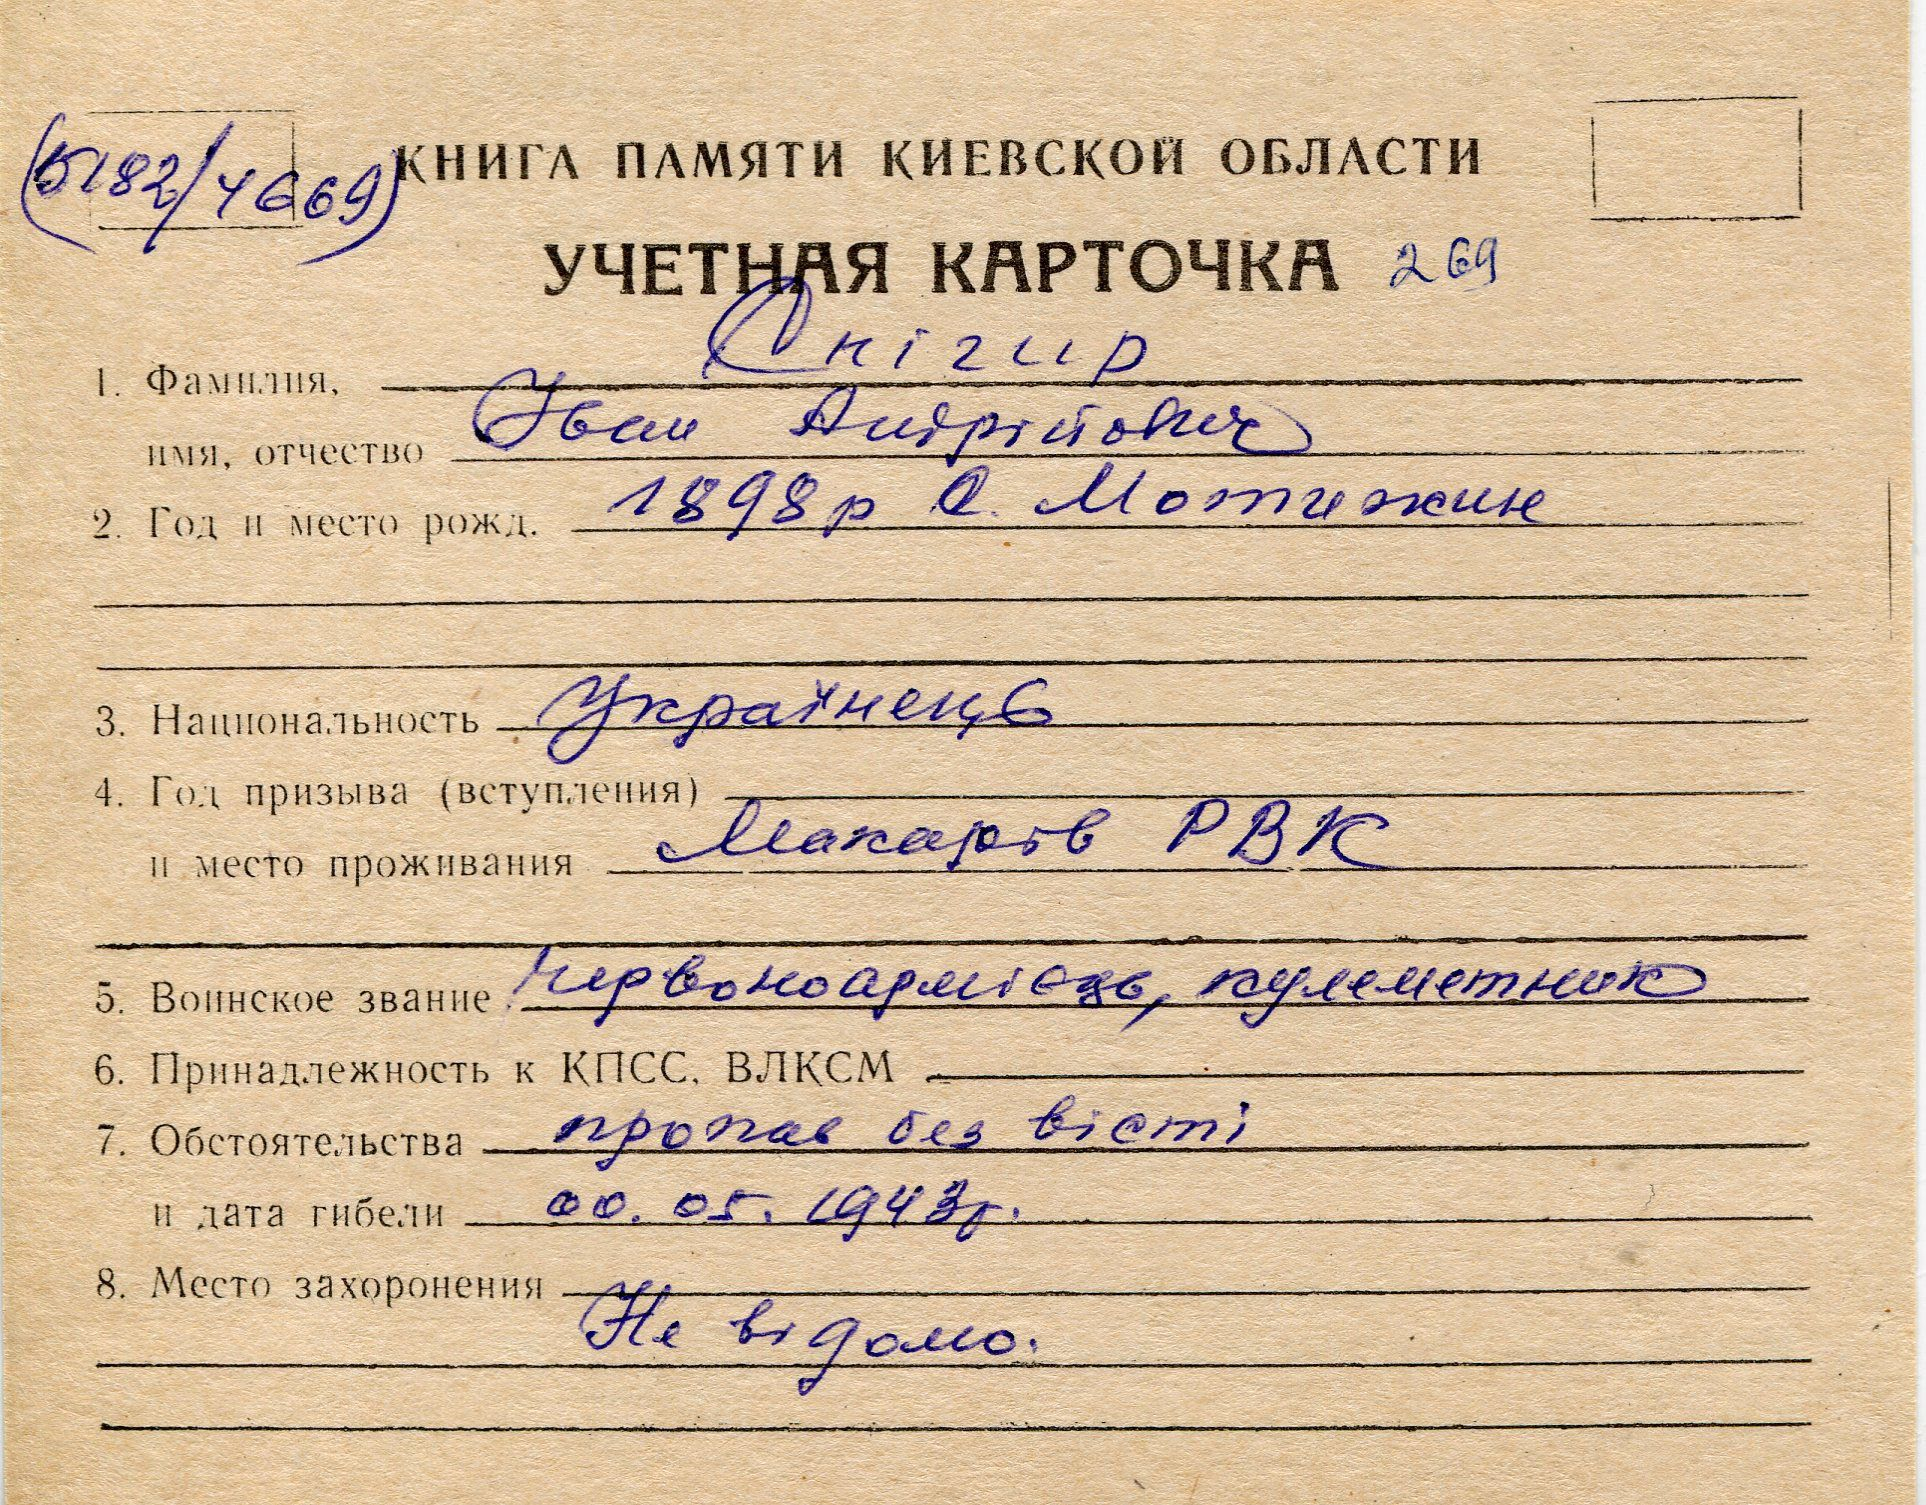 КНИГА ПАМЯТИ КИЕВСКОЙ ОБЛАСТИ
(5182/4669)
УЧЕТНАЯ КАРТОЧКА 269
1. Фамилия, Снігир
имя, отчество Іван Андрійович
2. Год и место рожд. 1898р с. Мотижин
3. Национальность Українець
4. Год призыва (вступления)
и место проживания Макарів РВК
5. Воинское звание Червоноармієць, кулеметник
6. Принадлежность к КПСС, ВЛКСМ
7. Обстоятельства пропав без вісті
и дата гибели 00.05.1943р.
8. Место захоронения
Не відомо.